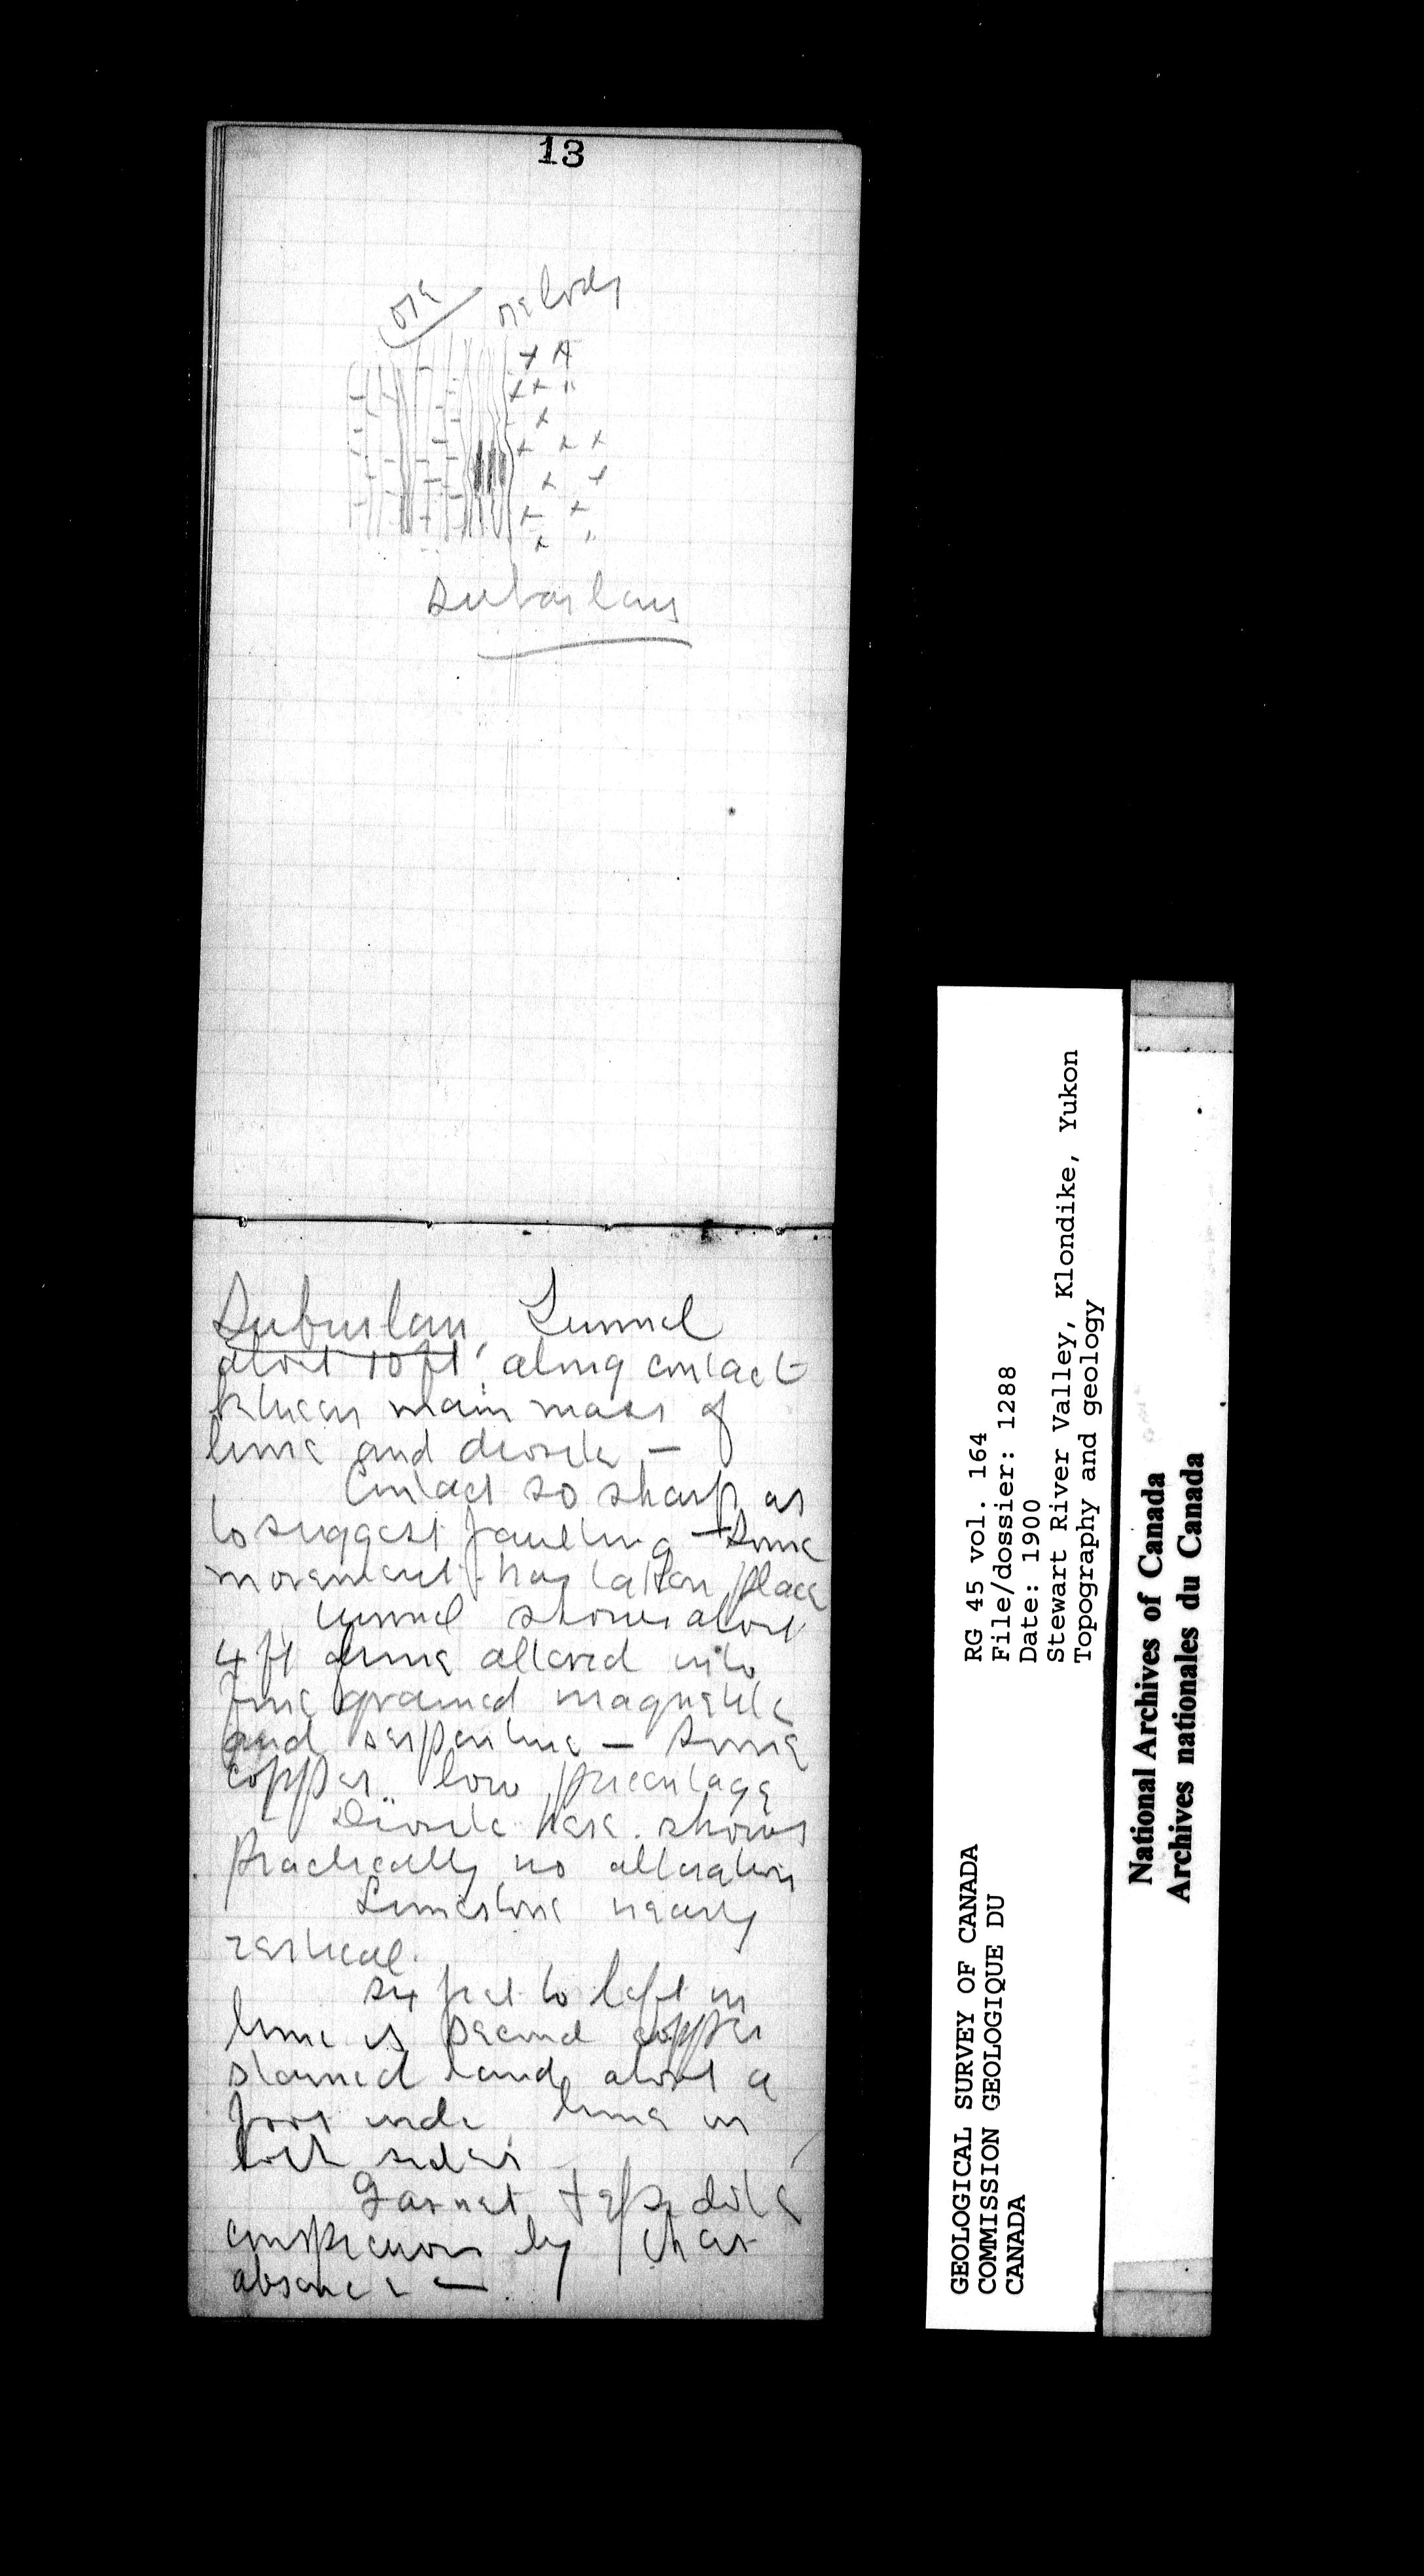 13
ore
ore body
Suburban
Suburban, Tunnel
about 10 ft, along contact
between main mass of
lime and diorite —
Contact so sharp as
to suggest faulting — Some
movement has taken place
Tunnel shows about
4 ft of lime altered into
fine grained magnetite
and serpentine — Some
copper low precentage
Diorite here shows
Practically no alteration
Limestone nearly
vertical.
Six feet to left in
lime is second copper
stained band about a
foot wide lime on
both sides
Garnet + epidote
conspicuous by their
absence —
RG 45 vol. 164
File/dossier: 1288
Date: 1900
Stewart River Valley, Klondike, Yukon
Topography and geology
GEOLOGICAL SURVEY OF CANADA
COMMISSION GEOLOGIQUE DU
CANADA
National Archives of Canada
Archives nationales du Canada